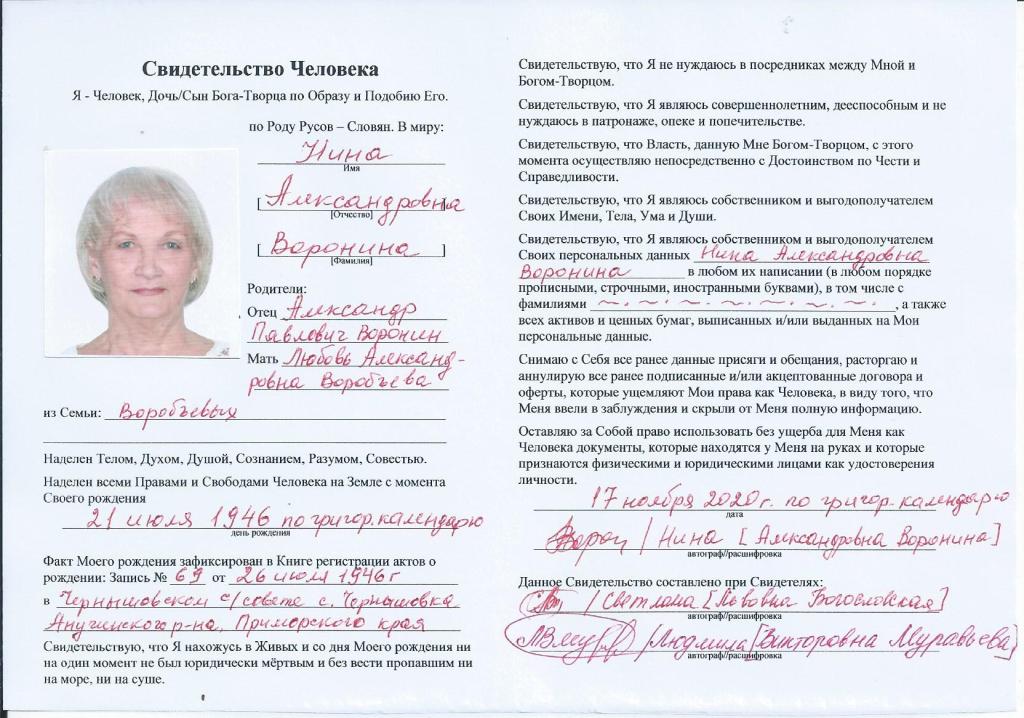 Свидетельство Человека
Я - Человек, Дочь/Сын Бога-Творца по Образу и Подобию Его.
по Роду Русов – Словян. В миру:
Нина
Имя
[ Александровна ]
[Отчество]
[ Воронина ]
[Фамилия]
Родители:
Отец Александр
Павлович Воронин
Мать Любовь Александ-
ровна Воробъева
из Семьи: Воробъевых
Наделен Телом, Духом, Душой, Сознанием, Разумом, Совестью.
Наделен всеми Правами и Свободами Человека на Земле с момента
Своего рождения
21 июля 1946 по григор. календарю
день рождения
Факт Моего рождения зафиксирован в Книге регистрации актов о
рождении: Запись № 69 от 26 июля 1946 г
в Чернышовском с/совете с. Чернышовка
Анучинского р-на, Приморского края
Свидетельствую, что Я нахожусь в Живых и со дня Моего рождения ни
на один момент не был юридически мёртвым и без вести пропавшим ни
на море, ни на суше.
Свидетельствую, что Я не нуждаюсь в посредниках между Мной и
Богом-Творцом.
Свидетельствую, что Я являюсь совершеннолетним, дееспособным и не
нуждаюсь в патронаже, опеке и попечительстве.
Свидетельствую, что Власть, данную Мне Богом-Творцом, с этого
момента осуществляю непосредственно с Достоинством по Чести и
Справедливости.
Свидетельствую, что Я являюсь собственником и выгодополучателем
Своих Имени, Тела, Ума и Души.
Свидетельствую, что Я являюсь собственником и выгодополучателем
Своих персональных данных Нина Александровна
Воронина в любом их написании (в любом порядке
прописными, строчными, иностранными буквами), в том числе с
фамилиями ~ ~ ~ ~ ~ ~ ~ ~ , а также
всех активов и ценных бумаг, выписанных и/или выданных на Мои
персональные данные.
Снимаю с Себя все ранее данные присяги и обещания, расторгаю и
аннулирую все ранее подписанные и/или акцептованные договора и
оферты, которые ущемляют Мои права как Человека, в виду того, что
Меня ввели в заблуждения и скрыли от Меня полную информацию.
Оставляю за Собой право использовать без ущерба для Меня как
Человека документы, которые находятся у Меня на руках и которые
признаются физическими и юридическими лицами как удостоверения
личности.
17 ноября 2020 г. по григор. календарю
дата
/ Нина [Александровна Воронина]
автограф//расшифровка
Данное Свидетельство составлено при Свидетелях:
/ Светлана [Львовна Богословская]
автограф//расшифровка
/ Людмила [Викторовна Муравьева]
автограф//расшифровка